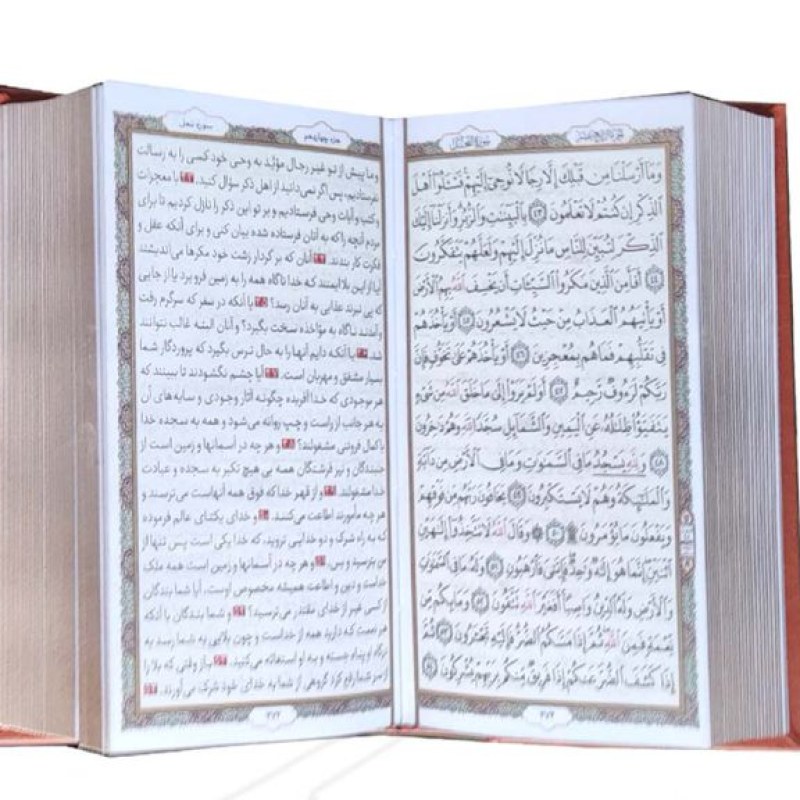 الجزء الرابع عشر
سورة النحل
وَمَا أَرْسَلْنَا مِنْ قَبْلِكَ إِلَّا رِجَالًا نُوحِي إِلَيْهِمْ فَسْئَلُوا أَهْلَ
الذِّكْرِ إِنْ كُنْتُمْ لَا تَعْلَمُونَ ﴿٤٣﴾ بِالْبَيِّنَاتِ وَالزُّبُرِ وَأَنْزَلْنَا إِلَيْكَ
الذِّكْرَ لِتُبَيِّنَ لِلنَّاسِ مَا نُزِّلَ إِلَيْهِمْ وَلَعَلَّهُمْ يَتَفَكَّرُونَ
﴿٤٤﴾ أَفَأَمِنَ الَّذِينَ مَكَرُوا السَّيِّئَاتِ أَنْ يَخْسِفَ اللهُ بِهِمُ الْأَرْضَ
أَوْ يَأْتِيَهُمُ الْعَذَابُ مِنْ حَيْثُ لَا يَشْعُرُونَ ﴿٤٥﴾ أَوْ يَأْخُذَهُمْ
فِي تَقَلُّبِهِمْ فَمَا هُمْ بِمُعْجِزِينَ ﴿٤٦﴾ أَوْ يَأْخُذَهُمْ عَلَى تَخَوُّفٍ فَإِنَّ
رَبَّكُمْ لَرَءُوفٌ رَحِيمٌ ﴿٤٧﴾ أَوَلَمْ يَرَوْا إِلَى مَا خَلَقَ اللهُ مِنْ شَيْءٍ
يَتَفَيَّؤُا ظِلَالُهُ عَنِ الْيَمِينِ وَالشَّمَائِلِ سُجَّدًا لِلهِ وَهُمْ دَاخِرُونَ
﴿٤٨﴾ وَلِلهِ يَسْجُدُ مَا فِي السَّمَوَاتِ وَمَا فِي الْأَرْضِ مِنْ دَابَّةٍ
وَالْمَلَائِكَةُ وَهُمْ لَا يَسْتَكْبِرُونَ ﴿٤٩﴾ يَخَافُونَ رَبَّهُمْ مِنْ فَوْقِهِمْ
وَيَفْعَلُونَ مَا يُؤْمَرُونَ ﴿٥٠﴾ وَقَالَ اللهُ لَا تَتَّخِذُوا إِلَهَيْنِ
اثْنَيْنِ إِنَّمَا هُوَ إِلَهٌ وَاحِدٌ فَإِيَّايَ فَارْهَبُونِ ﴿٥١﴾ وَلَهُ مَا فِي السَّمَوَاتِ
وَالْأَرْضِ وَلَهُ الدِّينُ وَاصِبًا أَفَغَيْرَ اللهِ تَتَّقُونَ ﴿٥٢﴾ وَمَا بِكُمْ مِنْ
نِعْمَةٍ فَمِنَ اللهِ ثُمَّ إِذَا مَسَّكُمُ الضُّرُّ فَإِلَيْهِ تَجْأَرُونَ ﴿٥٣﴾ ثُمَّ
إِذَا كَشَفَ الضُّرَّ عَنْكُمْ إِذَا فَرِيقٌ مِنْكُمْ بِرَبِّهِمْ يُشْرِكُونَ ﴿٥٤﴾
۲۷۲
جزء چهاردهم
سوره نحل
و ما پیش از تو غیر رجال مؤیّد به وحی خود کسی را به رسالت
نفرستادیم، پس اگر نمی‌دانید از اهل ذکر سؤال کنید. ۴۳ با معجزات
و کتب و آیات وحی فرستادیم و بر تو این ذکر را نازل کردیم تا برای
مردم آنچه را که به آنان فرستاده شده بیان کنی و برای آنکه عقل و
فکرت کار بندند. ۴۴ آنان که بر کردار زشت خود مکرها می‌اندیشند
آیا از این بلا ایمنند که خدا ناگاه همه را به زمین فرو برد یا از جایی
که پی نبرند عذابی به آنان رسد؟ ۴۵ یا آنکه در سفر که سرگرم رفت
و آمدند ناگاه به مؤاخذه سخت بگیرد؟ و آنان البته غالب نتوانند
شد. ۴۶ یا آنکه دایم آنها را به حال ترس بگیرد که پروردگار شما
بسیار مشفق و مهربان است. ۴۷ آیا چشم نگشودند تا ببینند که
هر موجودی که خدا آفریده چگونه آثار وجودی و سایه‌های آن
به هر جانب از راست و چپ روانه می‌شود و همه به سجده خدا
با کمال فروتنی مشغولند؟ ۴۸ و هر چه در آسمانها و زمین است از
جنبندگان و نیز فرشتگان همه بی هیچ تکبر به سجده و عبادت
خدا مشغولند. ۴۹ و از قهر خدا که فوق همه آنهاست می‌ترسند و
هر چه مأمورند اطاعت می‌کنند. ۵۰ و خدای یکتای عالم فرموده
که به راه شرک و دو خدایی نروید، که خدا یکی است پس تنها از
من بترسید و بس. ۵۱ و هر چه در آسمانها و زمین است همه ملک
خداست و دین و اطاعت همیشه مخصوص اوست، آیا شما بندگان
از کسی غیر از خدای مقتدر می‌ترسید؟ ۵۲ و شما بندگان با آنکه
هر نعمت که دارید همه از خداست و چون بلایی به شما رسد به
درگاه او پناه جسته و به او استغاثه می‌کنید. ۵۳ باز وقتی که بلا را
از سر شما رفع کرد گروهی از شما به خدای خود شرک می‌آورند. ۵۴
۲۷۲